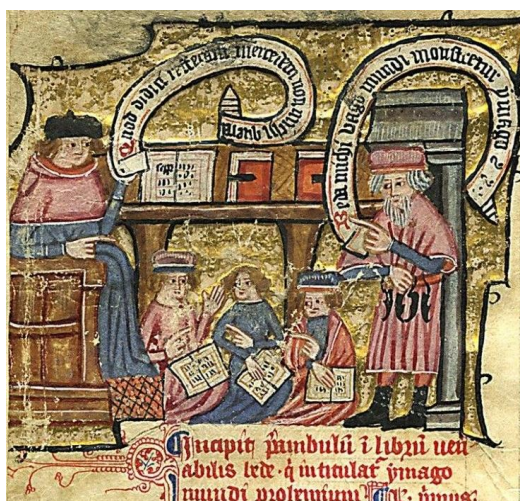 Quod didici refferam mercedem non michi
michi vago mundi monstretur ymago
Incipit p̄ambulū ī librū ven
abilis bede · q̄ intitulat᷑ ymago
mundi